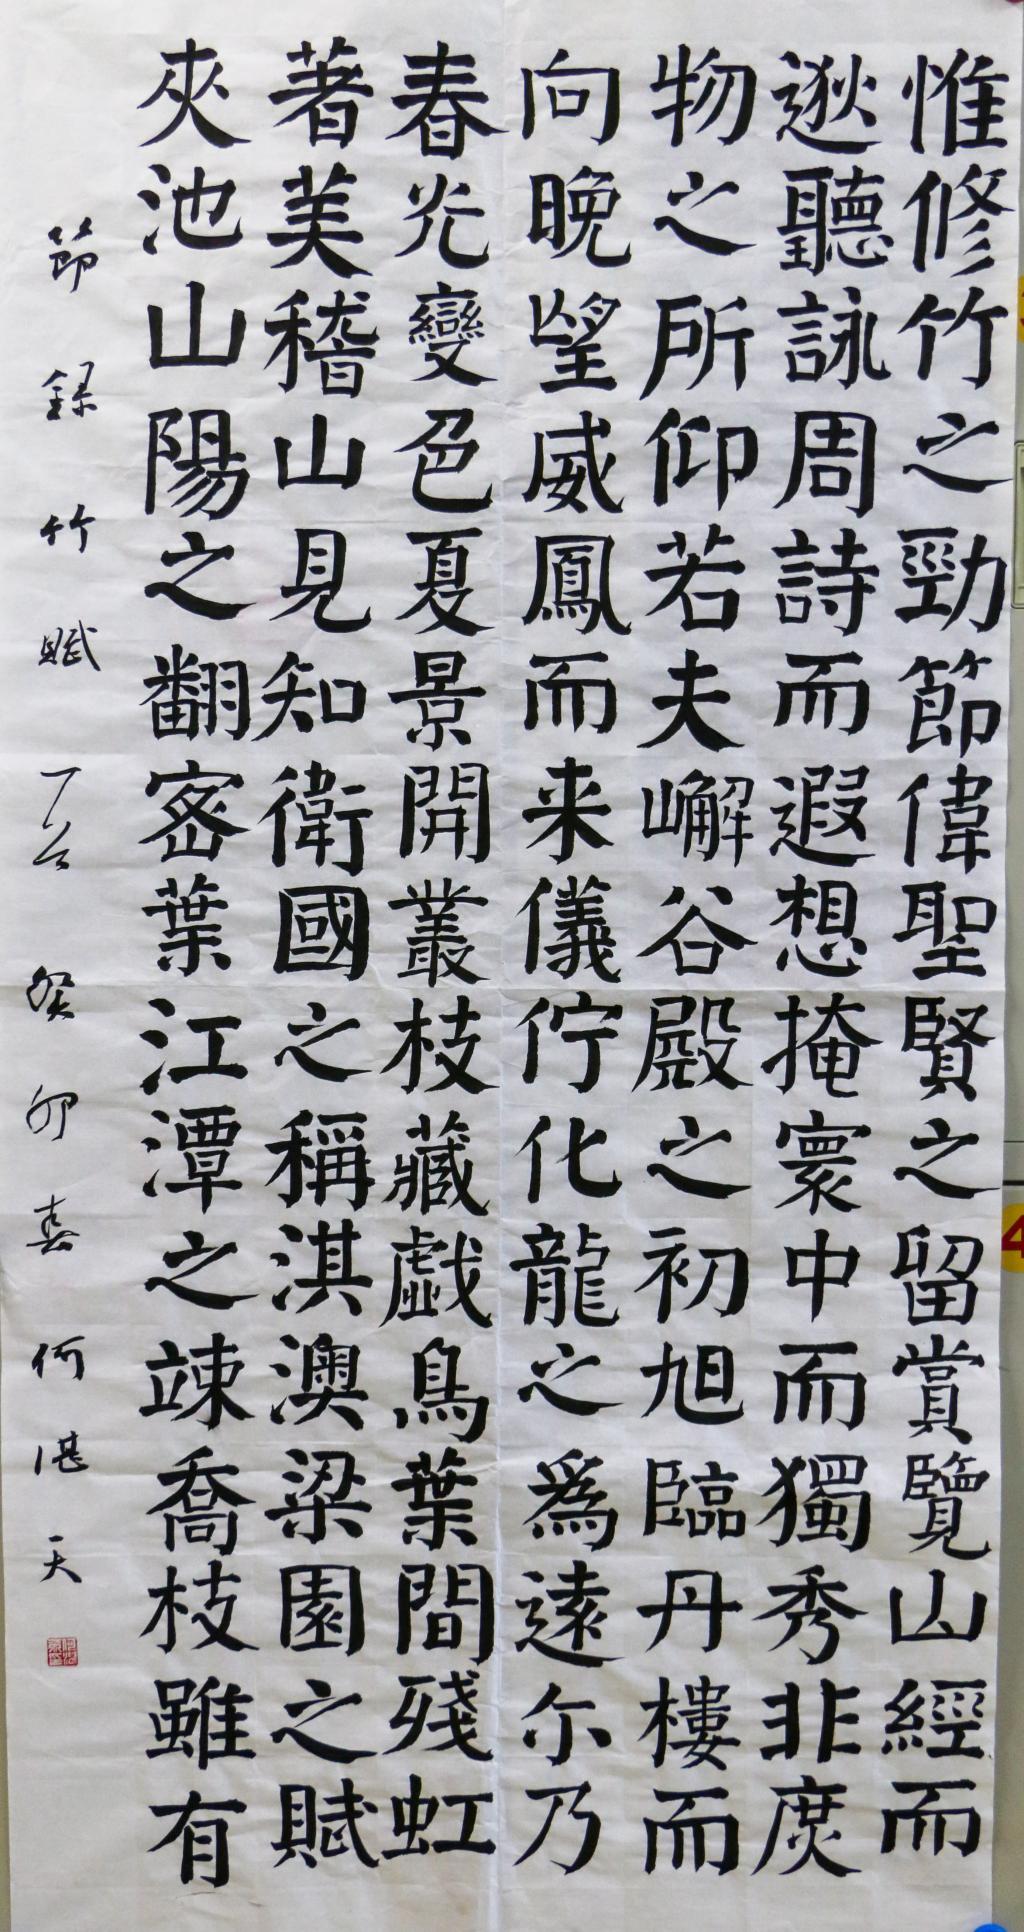 惟修竹之勁節偉聖賢之留賞覽山經而
逖聽詠周詩而遐想掩寰中而獨秀非庶
物之所仰若夫嶰谷殿之初旭臨丹樓而
向晚望威鳳而来儀佇化龍之為遠尓乃
春光變色夏景開叢枝藏戲鳥葉間殘虹
著美稽山見知衛國之稱淇澳梁園之賦
夾池山陽之翻密葉江潭之竦喬枝雖有
節錄竹賦
癸卯春 何湛天
4